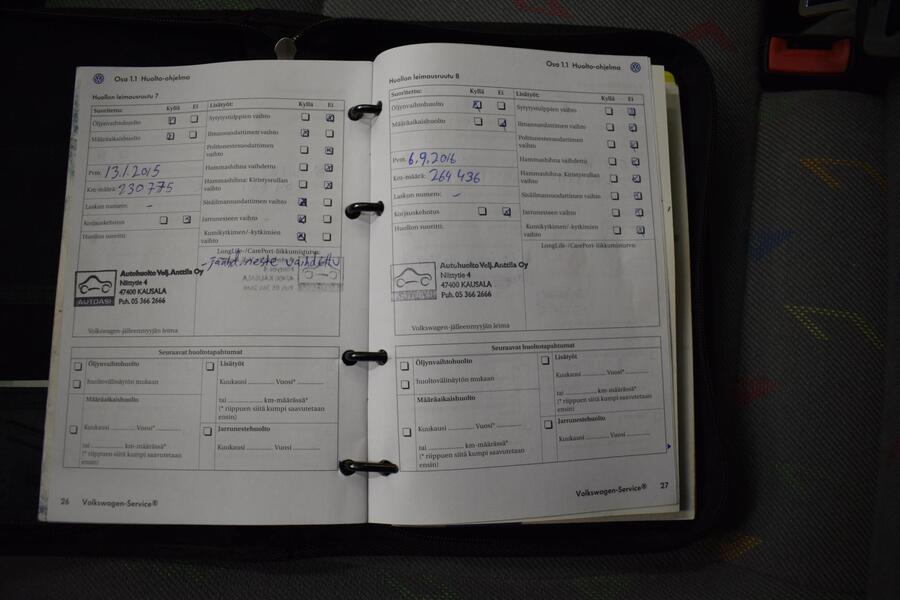 Osa 1.1 Huolto-ohjelma
Huollon leimausruutu 7
Suoritettu: Kyllä Ei
Öljynvaihtohuolto
Määräaikaishuolto
Pvm. 13.1.2015
Km-määrä: 230 775
Laskun numero: -
Korjauskehotus
Huollon suoritti:
Lisätyöt: Kyllä Ei
Sytytystulppien vaihto
Ilmansuodattimen vaihto
Polttonestesuodattimen
vaihto
Hammashihna vaihdettu
Hammashihna: Kiristysrullan
vaihto
Sisäilmansuodattimen vaihto
Jarrunesteen vaihto
Kumikytkimen/-kytkimien
vaihto
LongLife-/CarePort-liikkumisturva:
- jäähd.neste vaihdettu
AUTOASI
Autohuolto Velj. Anttila Oy
Niittytie 4
47400 KAUSALA
Puh. 05 366 2666
Volkswagen-jälleenmyyjän leima
Seuraavat huoltotapahtumat
Öljynvaihtohuolto
huoltovälinäytön mukaan
Määräaikaishuolto
Kuukausi Vuosi*
tai km-määrässä*
(* riippuen siitä kumpi saavutetaan
ensin)
Lisätyöt
Kuukausi Vuosi*
tai km-määrässä*
(* riippuen siitä kumpi saavutetaan
ensin)
Jarrunestehuolto
Kuukausi Vuosi
26 Volkswagen-Service®
Osa 1.1 Huolto-ohjelma
Huollon leimausruutu 8
Suoritettu: Kyllä Ei
Öljynvaihtohuolto
Määräaikaishuolto
Pvm. 6.9.2016
Km-määrä: 264 436
Laskun numero: -
Korjauskehotus
Huollon suoritti:
Lisätyöt: Kyllä Ei
Sytytystulppien vaihto
Ilmansuodattimen vaihto
Polttonestesuodattimen
vaihto
Hammashihna vaihdettu
Hammashihna: Kiristysrullan
vaihto
Sisäilmansuodattimen vaihto
Jarrunesteen vaihto
Kumikytkimen/-kytkimien
vaihto
LongLife-/CarePort-liikkumisturva:
Autohuolto Velj. Anttila Oy
Niittytie 4
47400 KAUSALA
Puh. 05 366 2666
Volkswagen-jälleenmyyjän leima
Seuraavat huoltotapahtumat
Öljynvaihtohuolto
huoltovälinäytön mukaan
Määräaikaishuolto
Kuukausi Vuosi*
tai km-määrässä*
(* riippuen siitä kumpi saavutetaan
ensin)
Lisätyöt
Kuukausi Vuosi*
tai km-määrässä*
(* riippuen siitä kumpi saavutetaan
ensin)
Jarrunestehuolto
Kuukausi Vuosi
Volkswagen-Service® 27